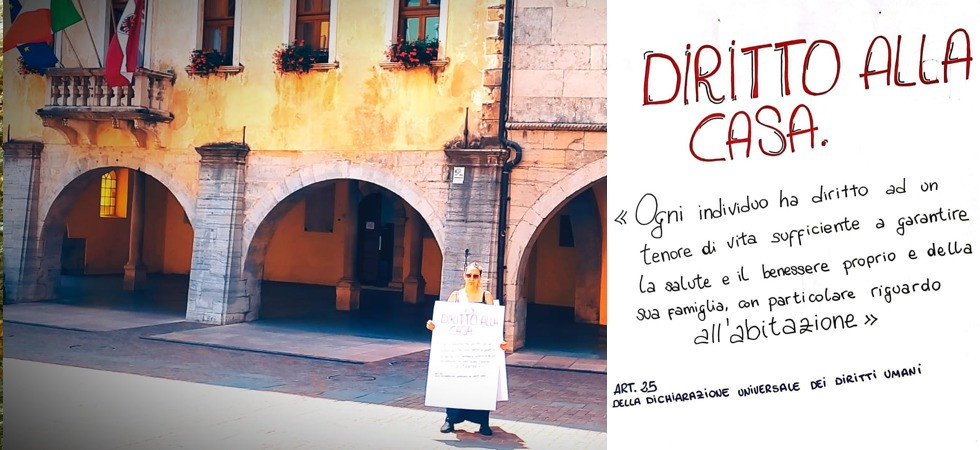 DIRITTO ALLA
CASA
DIRITTO ALLA
CASA.
« Ogni individuo ha diritto ad un
tenore di vita sufficiente a garantire
la salute e il benessere proprio e della
sua famiglia, con particolare riguardo
all'abitazione »
ART. 25
DELLA DICHIARAZIONE UNIVERSALE DEI DIRITTI UMANI